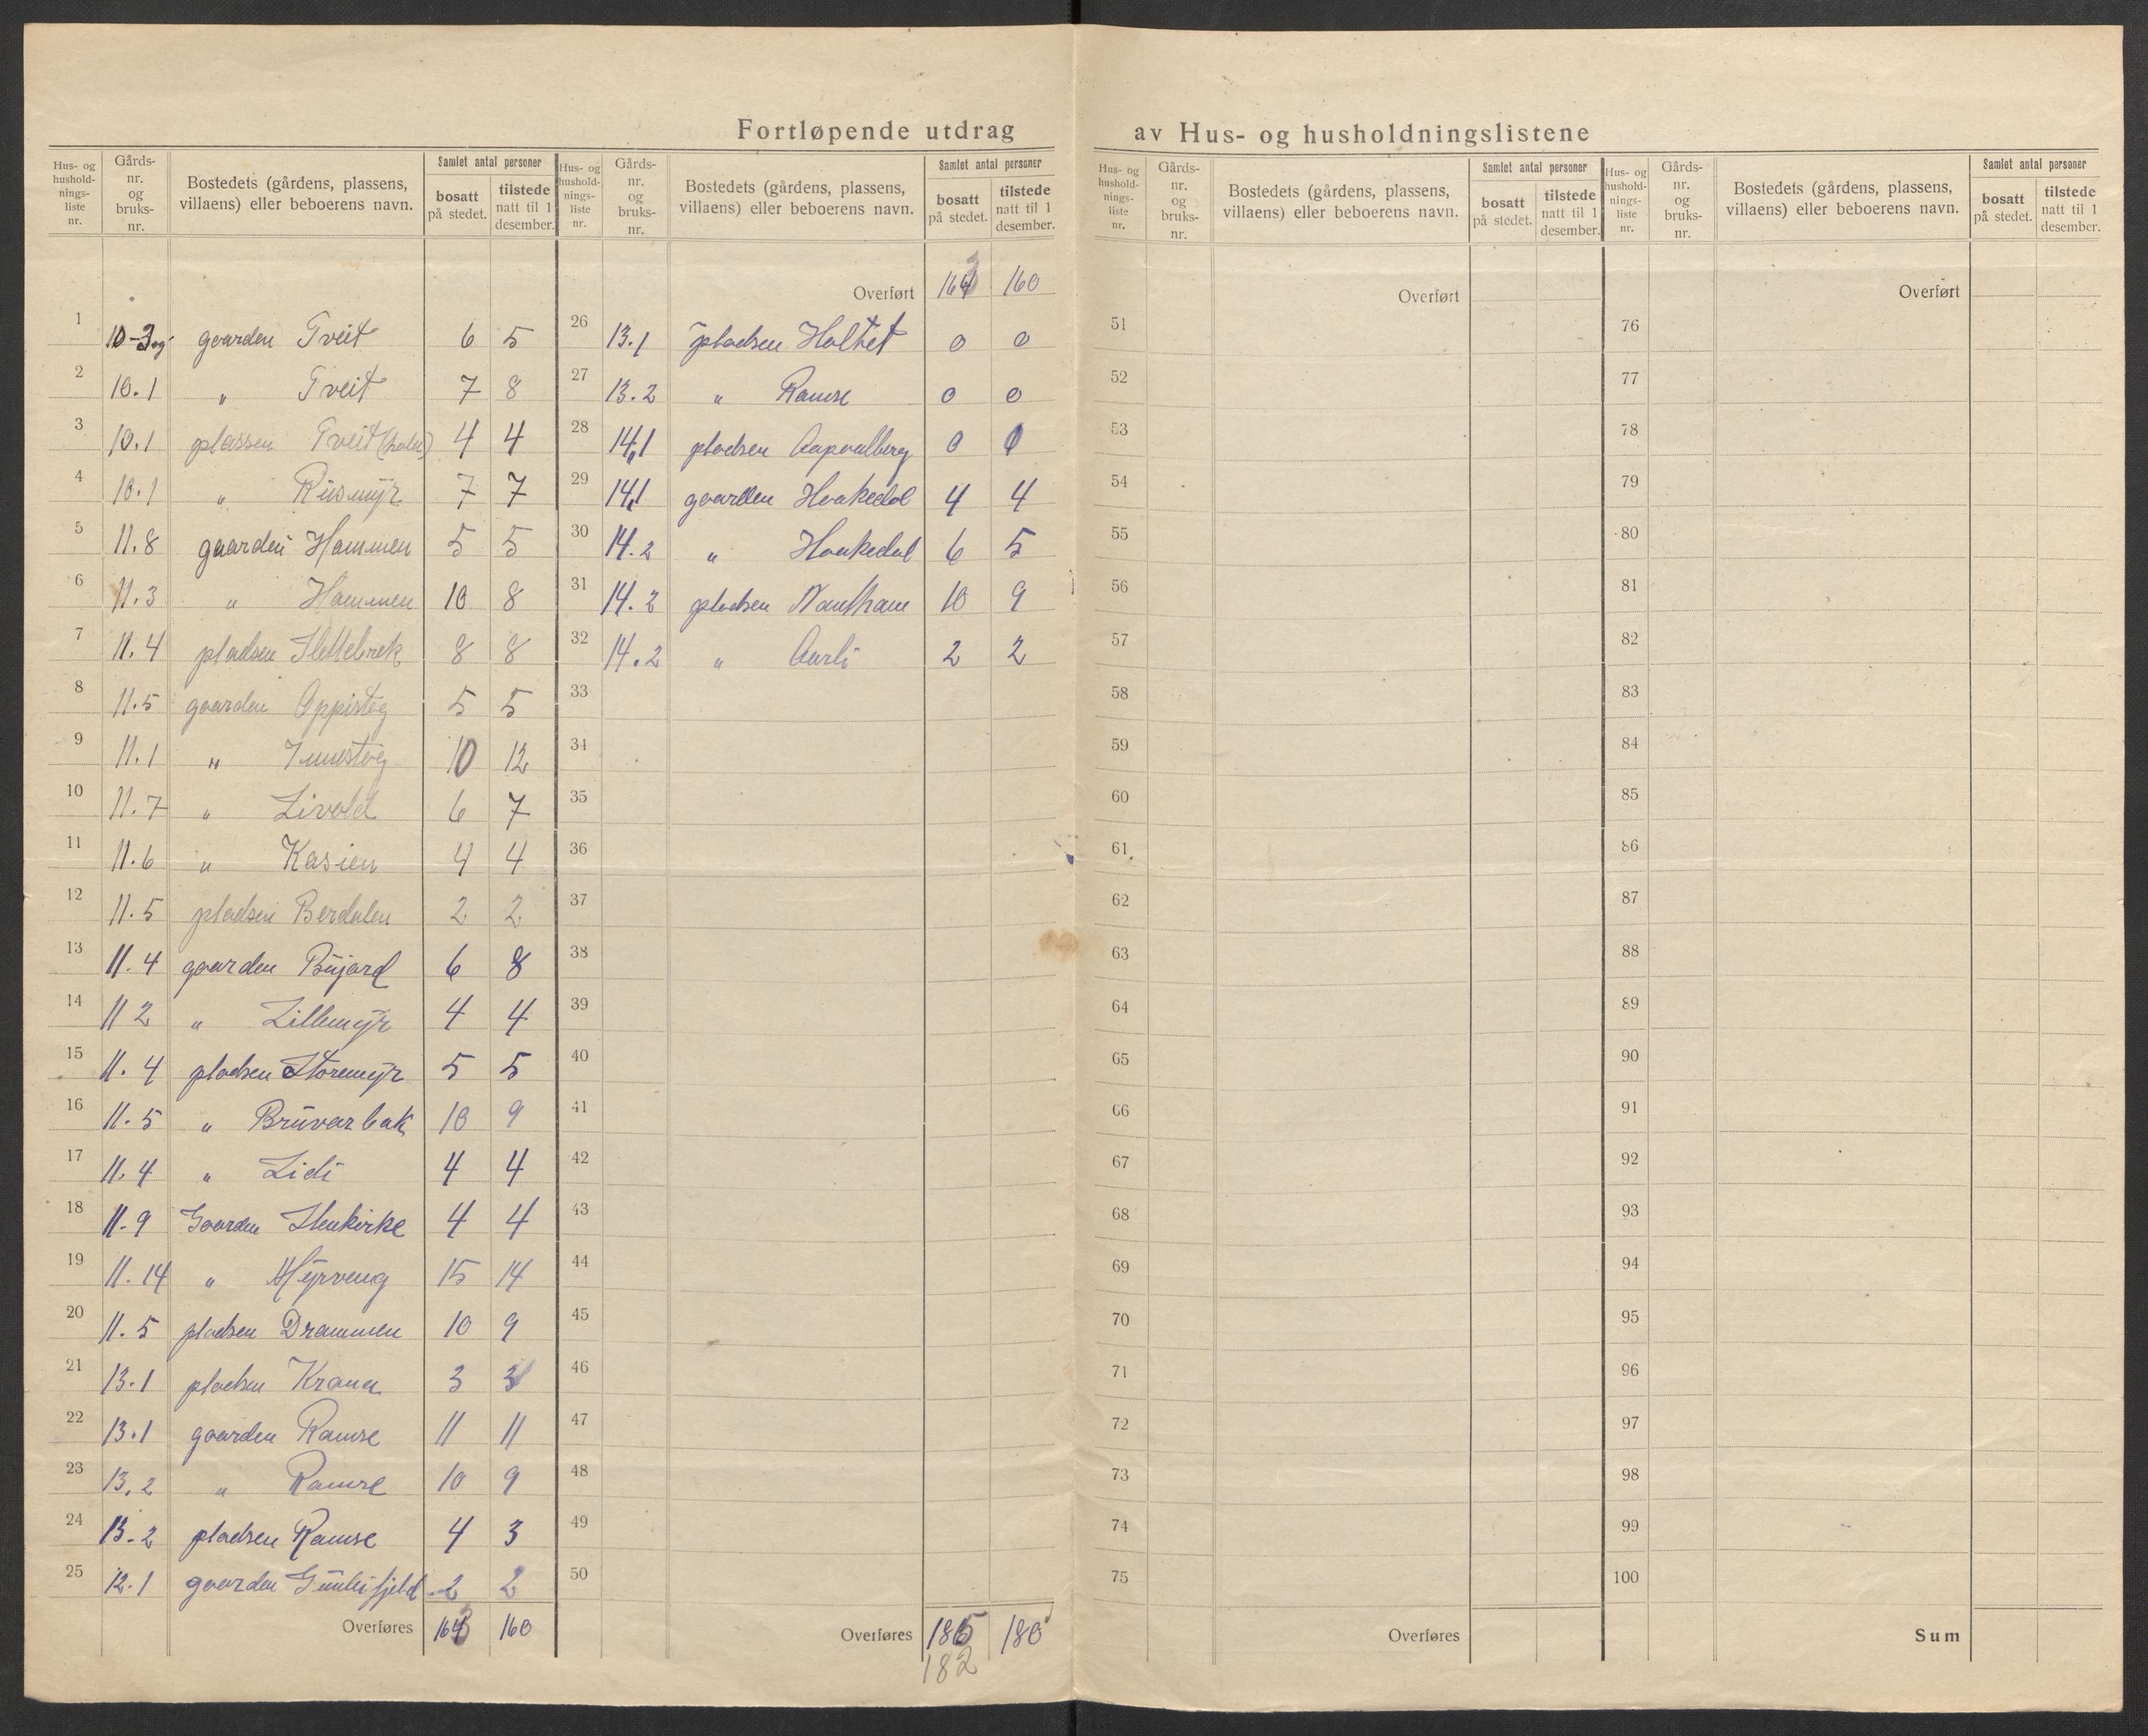 Fortløpende utdrag av Hus- og husholdningslistene
Hus- og husholdnings-liste nr. | Gårds-nr. og bruks-nr. | Bostedets (gårdens, plassens, villaens) eller beboerens navn. | Samlet antal personer | bosatt på stedet. | tilstede natt til 1 desember.
1 10-3 og gaarden Tveit 6 5
2 10.1 " Tveit 7 8
3 10.1 plassen Tveit 4 4
4 10.1 " Rusmyr 7 7
5 11.8 gaarden Hammen 5 5
6 11.3 " Hammen 10 8
7 11.4 pladsen Slettebrek 8 8
8 11.5 gaarden Oppistøg 5 5
9 11.1 " Innistøg 10 12
10 11.7 " Livold 6 7
11 11.6 " Kasien 4 4
12 11.5 pladsen Berdalen 2 2
13 11.4 gaarden Bujord 6 8
14 11 2 " Lillemyr 4 4
15 11.4 pladsen Storemyr 5 5
16 11.5 " Bruvarbak 10 9
17 11.4 " Lidi 4 4
18 11-9 Gaarden Stenkirke 4 4
19 11.14 " Myrveng 15 14
20 11.5 pladsen Drammen 10 9
21 13.1 pladsen Krana 3 3
22 13.1 gaarden Ramse 11 11
23 13.2 " Ramse 10 9
24 13-2 pladsen Ramse 4 3
25 12.1 gaarden Gunleifjeld 2 2
Overføres 163 160
Hus- og husholdnings-liste nr. | Gårds-nr. og bruks-nr. | Bostedets (gårdens, plassens, villaens) eller beboerens navn. | Samlet antal personer | bosatt på stedet. | tilstede natt til 1 desember.
Overført 163 160
26 13.1 pladsen Holtet 0 0
27 13.2 " Ramse 0 0
28 14.1 pladsen 0 0
29 14.1 gaarden Haakedal 4 4
30 14.2 " Haakedal 6 5
31 14.2 pladsen 10 9
32 14.2 " Aarli 2 2
33
34
35
36
37
38
39
40
41
42
43
44
45
46
47
48
49
50
Overføres 185 180
182
Hus- og husholdnings-liste nr. | Gårds-nr. og bruks-nr. | Bostedets (gårdens, plassens, villaens) eller beboerens navn. | Samlet antal personer | bosatt på stedet. | tilstede natt til 1 desember.
Overført
51
52
53
54
55
56
57
58
59
60
61
62
63
64
65
66
67
68
69
70
71
72
73
74
75
Overføres
Hus- og husholdnings-liste nr. | Gårds-nr. og bruks-nr. | Bostedets (gårdens, plassens, villaens) eller beboerens navn. | Samlet antal personer | bosatt på stedet. | tilstede natt til 1 desember.
Overført
76
77
78
79
80
81
82
83
84
85
86
87
88
89
90
91
92
93
94
95
96
97
98
99
100
Sum